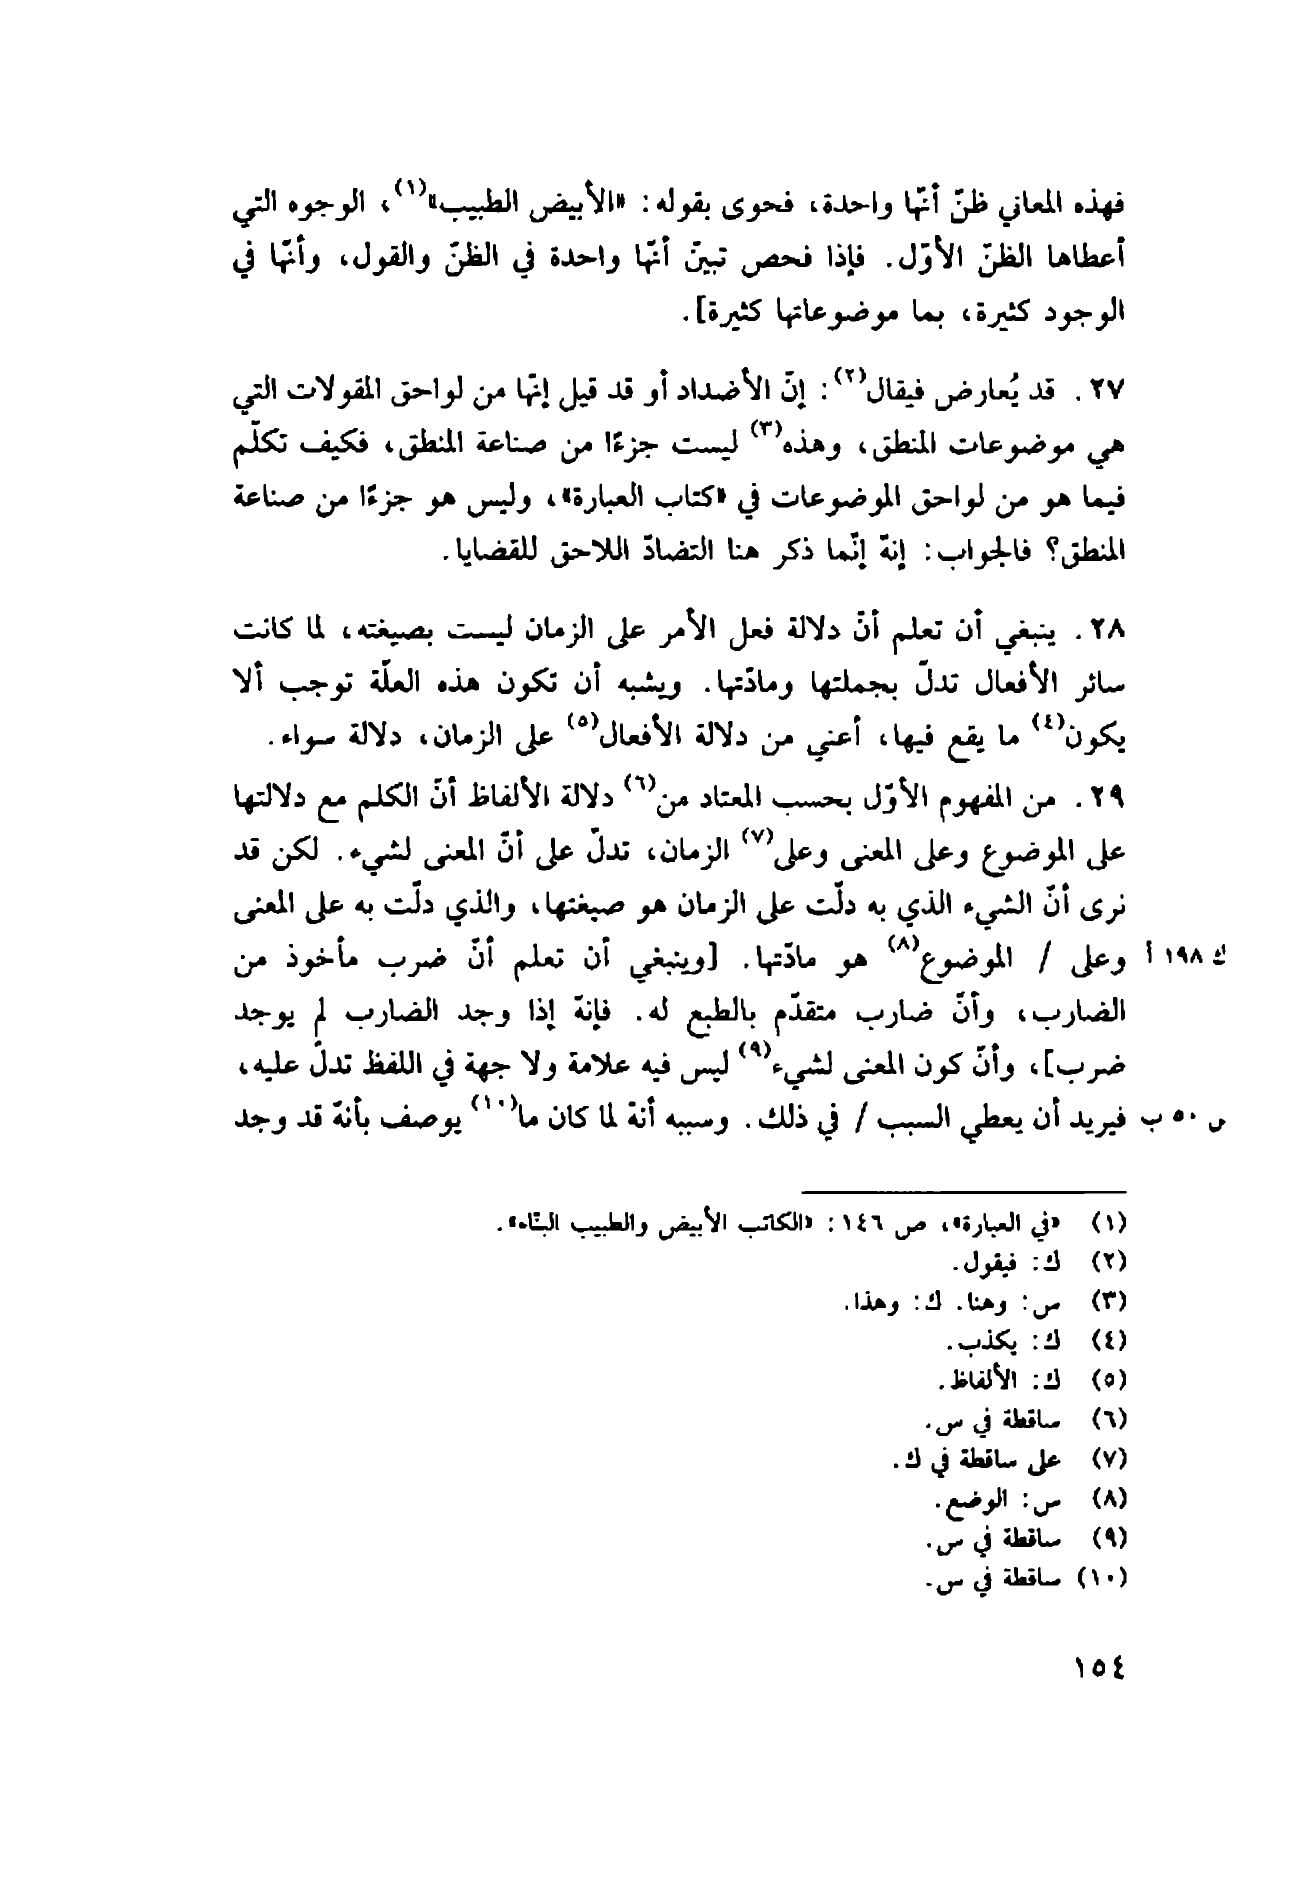 فهذه المعاني ظنّ أنّها واحدة، فحوى بقوله: «الأبيض الطبيب»(١)، الوجوه التي
أعطاها الظنّ الأوّل. فإذا فحص تبينّ أنّها واحدة في الظنّ والقول، وأنّها في
الوجود كثيرة، بما موضوعاتها كثيرة].
٢٧. قد يُعارض فيقال(٢): إنّ الأضداد أو قد قيل إنّها من لواحق المقولات التي
هي موضوعات المنطق، وهذه(٣) ليست جزءًا من صناعة المنطق، فكيف تكلّم
فيما هو من لواحق الموضوعات في «كتاب العبارة»، وليس هو جزءًا من صناعة
المنطق؟ فالجواب: إنهّ إنّما ذكر هنا التضادّ اللاحق للقضايا.
٢٨. ينبغي أن تعلم أنّ دلالة فعل الأمر على الزمان ليست بصيغته، لما كانت
سائر الأفعال تدلّ بجملتها ومادّتها. ويشبه أن تكون هذه العلّة توجب ألا
يكون(٤) ما يقع فيها، أعني من دلالة الأفعال(٥) على الزمان، دلالة سواء.
٢٩. من المفهوم الأوّل بحسب المعتاد من(٦) دلالة الألفاظ أنّ الكلم مع دلالتها
على الموضوع وعلى المعنى وعلى(٧) الزمان، تدلّ على أنّ المعنى لشيء. لكن قد
نرى أنّ الشيء الذي به دلّت على الزمان هو صيغتها، والذي دلّت به على المعنى
ك ١٩٨ أ وعلى / الموضوع(٨) هو مادّتها. [وينبغي أن تعلم أنّ ضرب مأخوذ من
الضارب، وأنّ ضارب متقدّم بالطبع له. فإنهّ إذا وجد الضارب لم يوجد
ضرب]، وأنّ كون المعنى لشيء(٩) ليس فيه علامة ولا جهة في اللفظ تدلّ عليه،
س ٥٠ ب فيريد أن يعطي السبب / في ذلك. وسببه أنهّ لما كان ما(١٠) يوصف بأنهّ قد وجد
(١) «في العبارة»، ص ١٤٦: «الكاتب الأبيض والطبيب البنّاء».
(٢) ك: فيقول.
(٣) س: وهنا. ك: وهذا.
(٤) ك: يكذب.
(٥) ك: الألفاظ.
(٦) ساقطة في س.
(٧) على ساقطة في ك.
(٨) س: الوضع.
(٩) ساقطة في س.
(١٠) ساقطة في س.
١٥٤